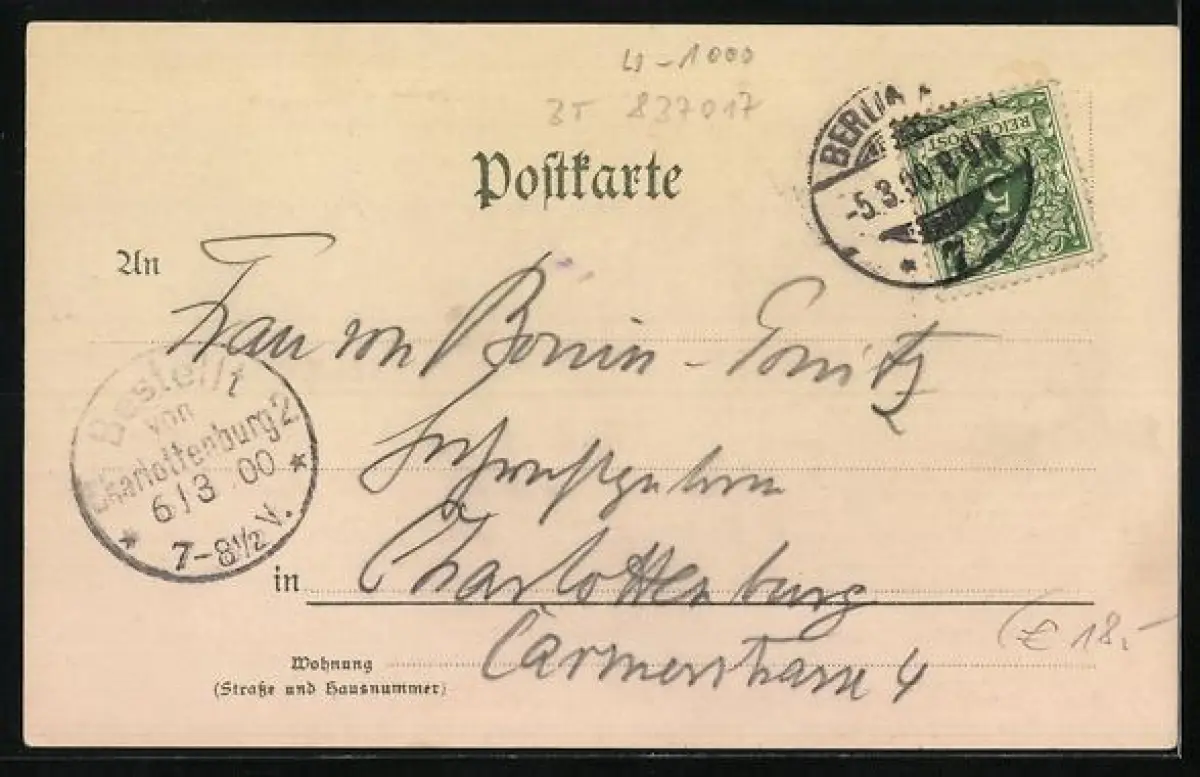 W-1000
3T 837017
Postkarte
BERLIN
-5.3.00 8-9N
7 c
REICHSPOST
5
An
Frau von Bonin-
Bestellt
von
Charlottenburg 2
6/3 00
7-8½ V.
in Charlottenburg
Wohnung
(Straße und Hausnummer)
Carmerstrasse 4
€ 18.-